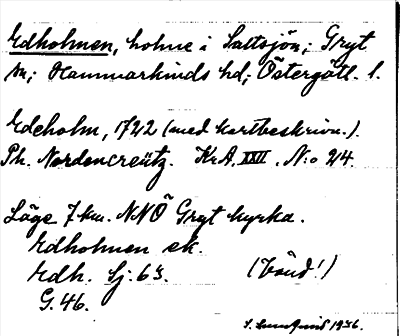 Edholmen, holme i Saltsjön; Gryt
sn; Hammarkinds hd; Östergötl. l.
Edeholm, 1722 (med kartbeskrivn.).
Ph. Nordencreütz. KrA. XXII. N:o 24.
Läge 7 km. NNÖ Gryt kyrka.
Edholmen ek.
Edh. Sj. 63. (Vänd!)
G. 46.
1936.